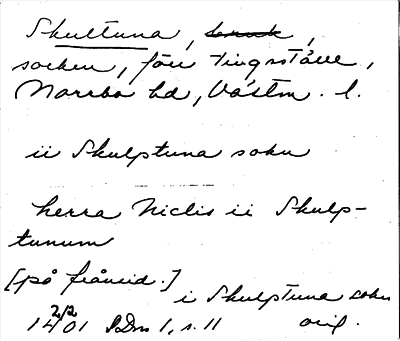 Skultuna, bruk,
socken, förr tingsställe,
Norrbo hd, Västm. l.
ii Skulptuna sokn
herra Niclis ii Skulp-
tunum
[på frånsid.]
i Skulptuna sokn
2/2
1401 SDns 1, s. 11 orig.